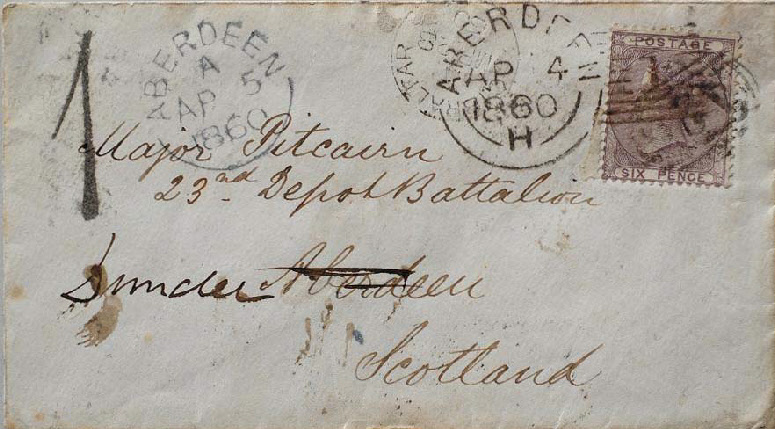 ABERDEEN
A
AP 5
1860
ABERDEEN
AP 4
1860
H
POSTAGE
SIX PENCE
1
Major Pitcairn
23rd Depot Battalion
Aberdeen
Scotland